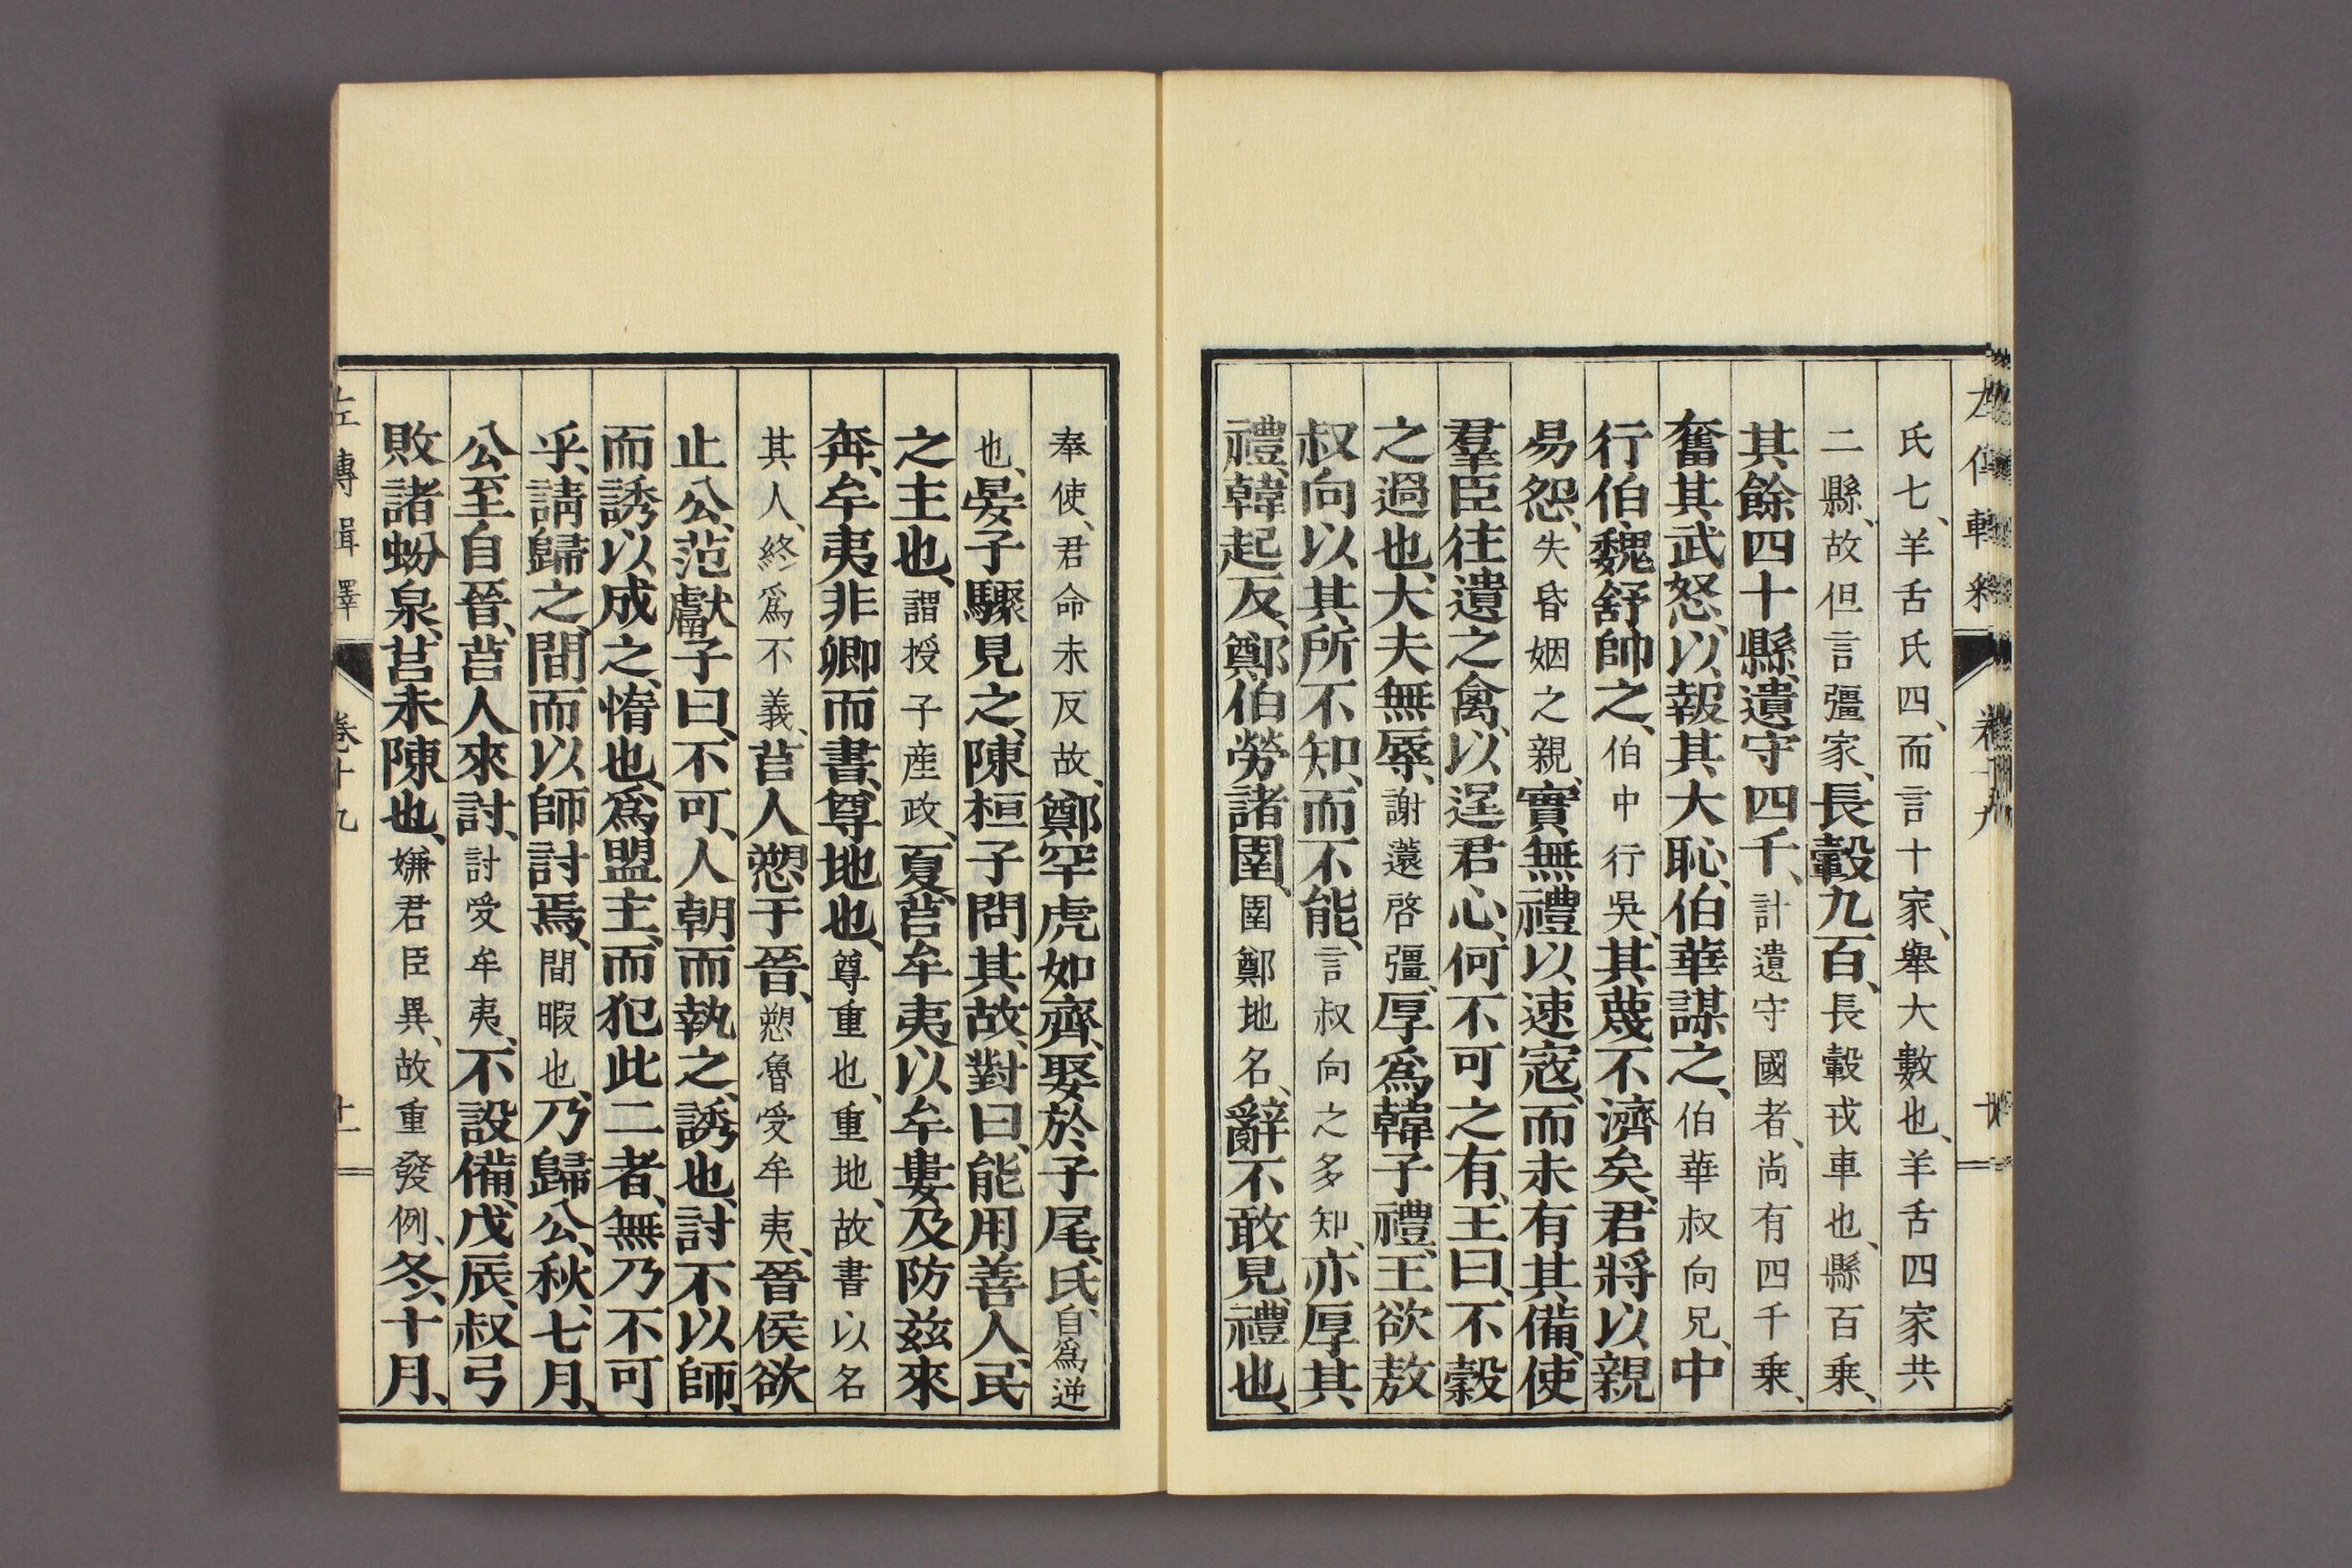 氏七、羊舌氏四、而言十家、舉大數也、羊舌四家共
二縣、故但言彊家、長轂九百、長轂戎車也、縣百乘、
其餘四十縣、遺守四千、計遺守國者、尚有四千乘、
奮其武怒、以報其大恥、伯華謀之、伯華叔向兄、中
行伯魏舒帥之、伯中行吳、其蔑不濟矣、君將以親
易怨、失昏姻之親、實無禮以速寇、而未有其備、使
羣臣往遺之禽、以逞君心、何不可之有、王曰、不穀
之過也、大夫無辱、謝薳啓彊、厚爲韓子禮、王欲敖
叔向以其所不知、而不能、言叔向之多知、亦厚其
禮、韓起反、鄭伯勞諸圉、圉鄭地名、辭不敢見、禮也、
奉使、君命未反故、鄭罕虎如齊、娶於子尾氏、自爲逆
也、晏子驟見之、陳桓子問其故、對曰、能用善人、民
之主也、謂授子産政、夏、莒牟夷以牟婁及防茲來
奔、牟夷非卿而書、尊地也、尊重也、重地、故書以名
其人、終爲不義、莒人愬于晉、愬魯受牟夷、晉侯欲
止公、范獻子曰、不可、人朝而執之、誘也、討不以師、
而誘以成之、惰也、爲盟主、而犯此二者、無乃不可
乎、請歸之、間而以師討焉、間暇也、乃歸公、秋、七月、
公至自晉、莒人來討、討受牟夷、不設備、戊辰、叔弓
敗諸蚡泉、莒未陳也、嫌君臣異、故重發例、冬、十月、
左傳輯釋 卷十九 十一